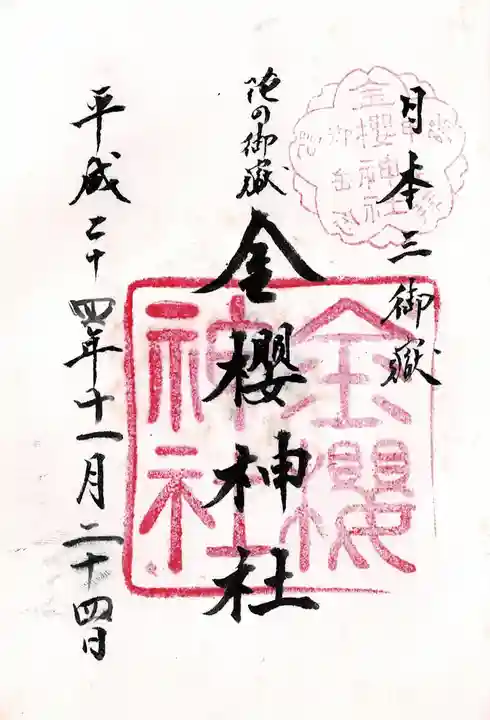 日本三御嶽
花の御嶽
金櫻神社
平成二十四年十一月二十四日
金櫻
神社
金櫻神社